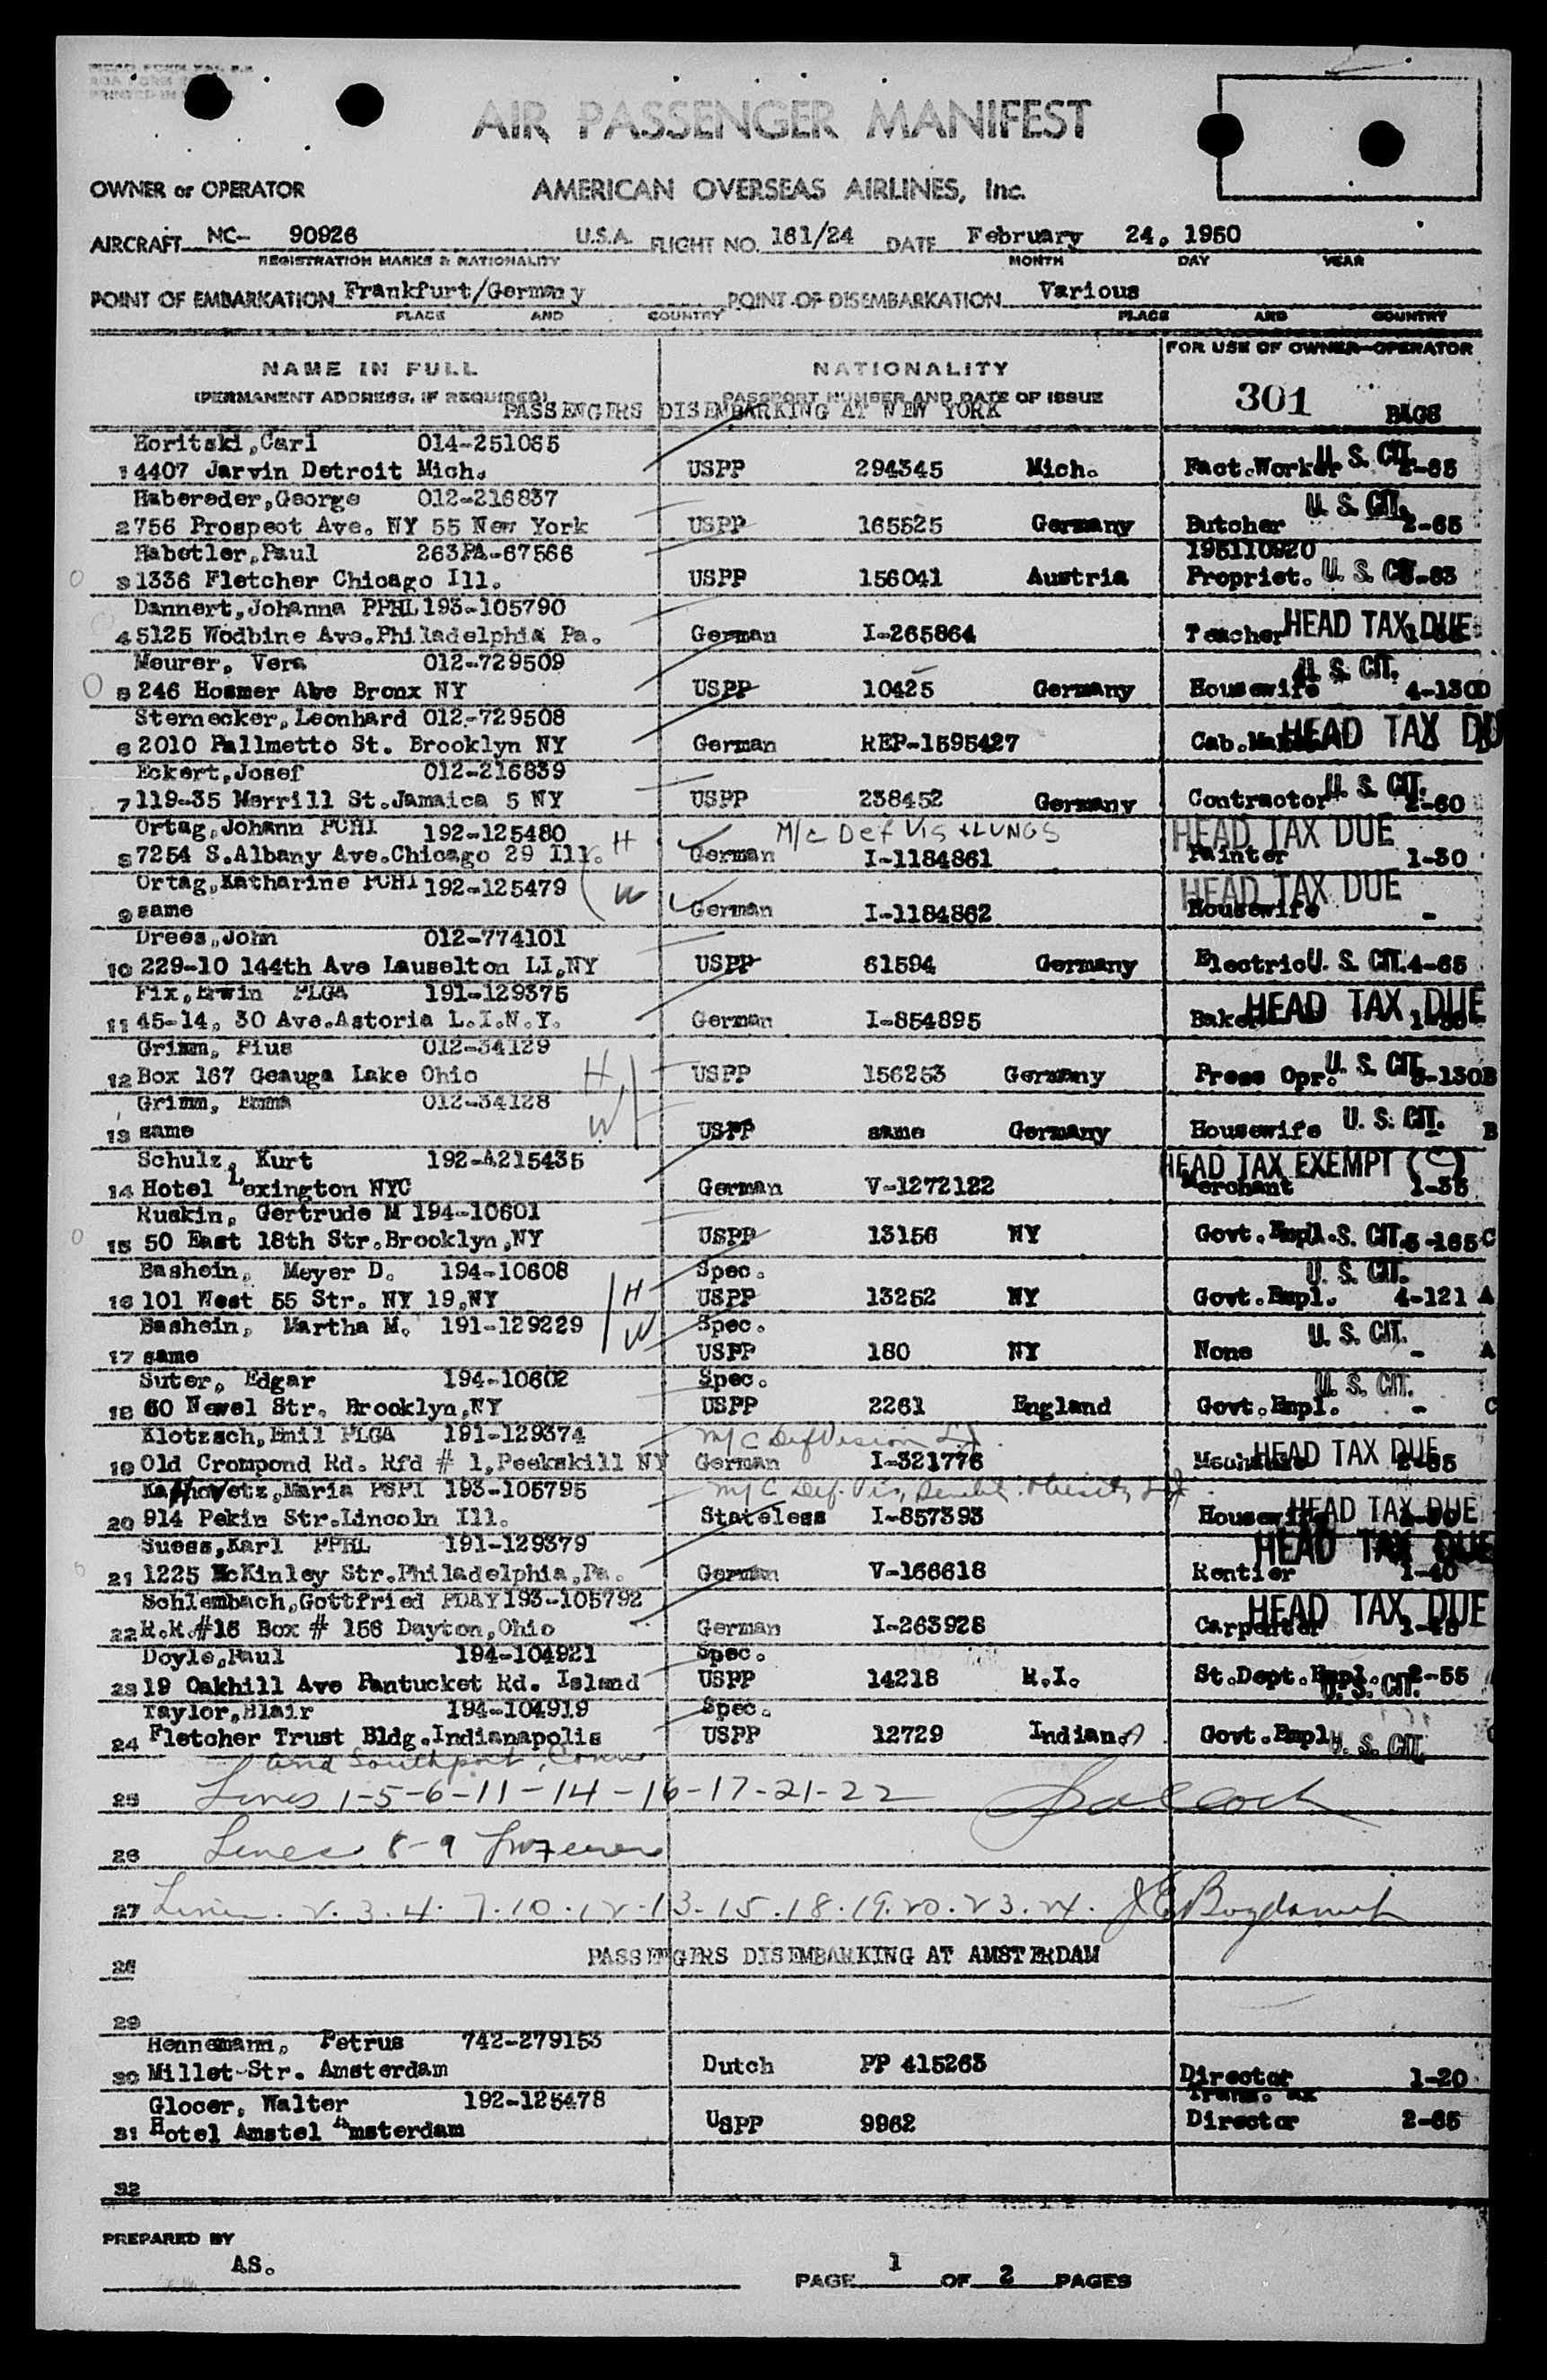 AIR PASSENGER MANIFEST
OWNER or OPERATOR AMERICAN OVERSEAS AIRLINES, Inc.
AIRCRAFT NC- 90926 U.S.A. FLIGHT NO. 161/24 DATE February 24, 1950
REGISTRATION MARKS & NATIONALITY MONTH DAY YEAR
POINT OF EMBARKATION Frankfurt/Germany POINT OF DISEMBARKATION Various
PLACE AND COUNTRY PLACE AND COUNTRY
FOR USE OF OWNER-OPERATOR
NAME IN FULL NATIONALITY
301 BAGS
(PERMANENT ADDRESS, IF REQUIRED) PASSPORT NUMBER AND DATE OF ISSUE
PASSENGERS DISEMBARKING AT NEW YORK
Horitski,Carl 014-251065
1 4407 Jarvin Detroit Mich. USPP 294345 Mich. Fact.Worker U. S. CIT.
Habereder,George 012-216837 U. S. CIT.
2 756 Prospect Ave. NY 55 New York USPP 165525 Germany Butcher 2-65
Habetler,Paul 263PA-67566 195110920
3 1336 Fletcher Chicago Ill. USPP 156041 Austria Propriet. U. S.
Dannert,Johanna PPHL 193-105790
4 5125 Wodbine Ave.Philadelphia Pa. German I-265864 Teacher HEAD TAX DUE
Meurer, Vera 012-729509 U. S. CIT.
5 246 Hosmer Ave Bronx NY USPP 10425 Germany Housewife 4-130D
Sternecker,Leonhard 012-729508
6 2010 Pallmetto St. Brooklyn NY German REP-1595427 HEAD TAX
Eckert,Josef 012-216839
7 119-35 Merrill St.Jamaica 5 NY USPP 238452 Germany Contractor U. S. CIT. 2-60
Ortag,Johann PCHI 192-125480 H M/c Def Vis & LUNGS HEAD TAX DUE
8 7254 S.Albany Ave.Chicago 29 Ill. German I-1184861 Painter 1-30
Ortag,Katharine PCHI 192-125479 W HEAD TAX DUE
9 same German I-1184862 Housewife -
Drees,John 012-774101
10 229-10 144th Ave Lauselton LI,NY USPP 61594 Germany U. S. CIT. 4-65
Fix,Erwin PLGA 191-129375
11 45-14, 30 Ave.Astoria L.I.N.Y. German I-854895 Baker HEAD TAX DUE
Grimm, Pius 012-34129 H
12 Box 167 Geauga Lake Ohio USPP 156253 Germany Press Opr. U. S. CIT.
Grimm, Emma 012-34128 W
13 same USPP same Germany Housewife U. S. CIT. B
Schulz, Kurt 192-A215435 HEAD TAX EXEMPT (C)
14 Hotel Lexington NYC German V-1272122 Merchant 1-35
Ruskin, Gertrude M 194-10601
15 50 East 18th Str.Brooklyn,NY USPP 13156 NY Govt.Empl. U. S. CIT. C
Bashein, Meyer D. 194-10608 H Spec. U. S. CIT.
16 101 West 55 Str. NY 19,NY USPP 13252 NY Govt.Empl. 4-121 A
Bashein, Martha M. 191-129229 W Spec. U. S. CIT.
17 same USPP 180 NY None - A
Suter, Edgar 194-10602 Spec. U. S. CIT.
18 60 Newel Str. Brooklyn,NY USPP 2261 England Govt.Empl. - C
Klotzsch,Emil PLGA 191-129374 M/C Def Vision
19 Old Crompond Rd. Rfd # 1,Peekskill NY German I-321776 HEAD TAX DUE
Maria PSPI 193-105795 M/C Def. Vis,
20 914 Pekin Str.Lincoln Ill. Stateless I-857393 Housewife HEAD TAX DUE
Suess,Karl PPHL 191-129379 HEAD TAX DUE
21 1225 McKinley Str.Philadelphia,Pa. German V-166618 Rentier 1-40
Schlembach,Gottfried PDAY 193-105792 HEAD TAX DUE
22 R.R.#16 Box # 156 Dayton,Ohio German I-263928 Carpenter
Doyle,Paul 194-104921 Spec.
23 19 Oakhill Ave Pantucket Rd. Island USPP 14218 R.I. St.Dept.Empl. 2-55 U. S. CIT.
Taylor,Blair 194-104919 Spec.
24 Fletcher Trust Bldg.Indianapolis USPP 12729 Indiana Govt.Empl. U. S. CIT.
and Southport, Conn
25 Lines 1-5-6-11-14-16-17-21-22
26 Lines 8-9
27 Lines 2.3.4.7.10.12.13.15.18.19.20.23.24.
28 PASSENGERS DISEMBARKING AT AMSTERDAM
29
Hennemann, Petrus 742-279153
30 Millet-Str. Amsterdam Dutch PP 415263 Director 1-20
Glocer, Walter 192-125478
31 Hotel Amstel Amsterdam USPP 9962 Director 2-65
32
PREPARED BY
AS.
PAGE 1 OF 2 PAGES